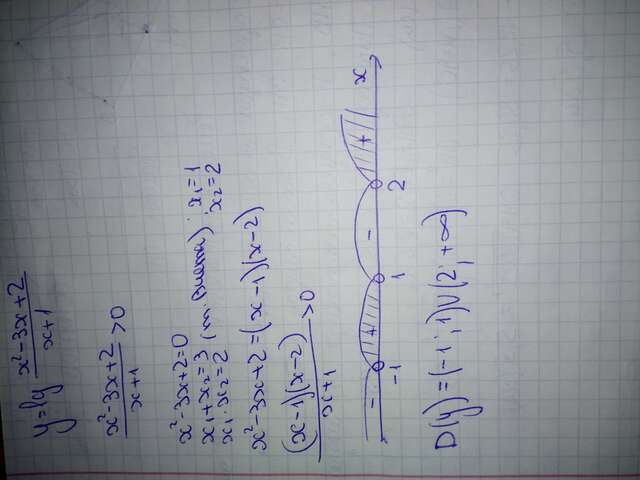 y=lg x²-3x+2/x+1
x²-3x+2/x+1 >0
x²-3x+2=0
x₁+x₂=3 (т. Виета) : x₁=1
x₁·x₂=2 ; x₂=2
x²-3x+2=(x-1)(x-2)
(x-1)(x-2)/x+1 >0
- + - + x
-1 1 2
D(y)=(-1;1)∪(2;+∞)